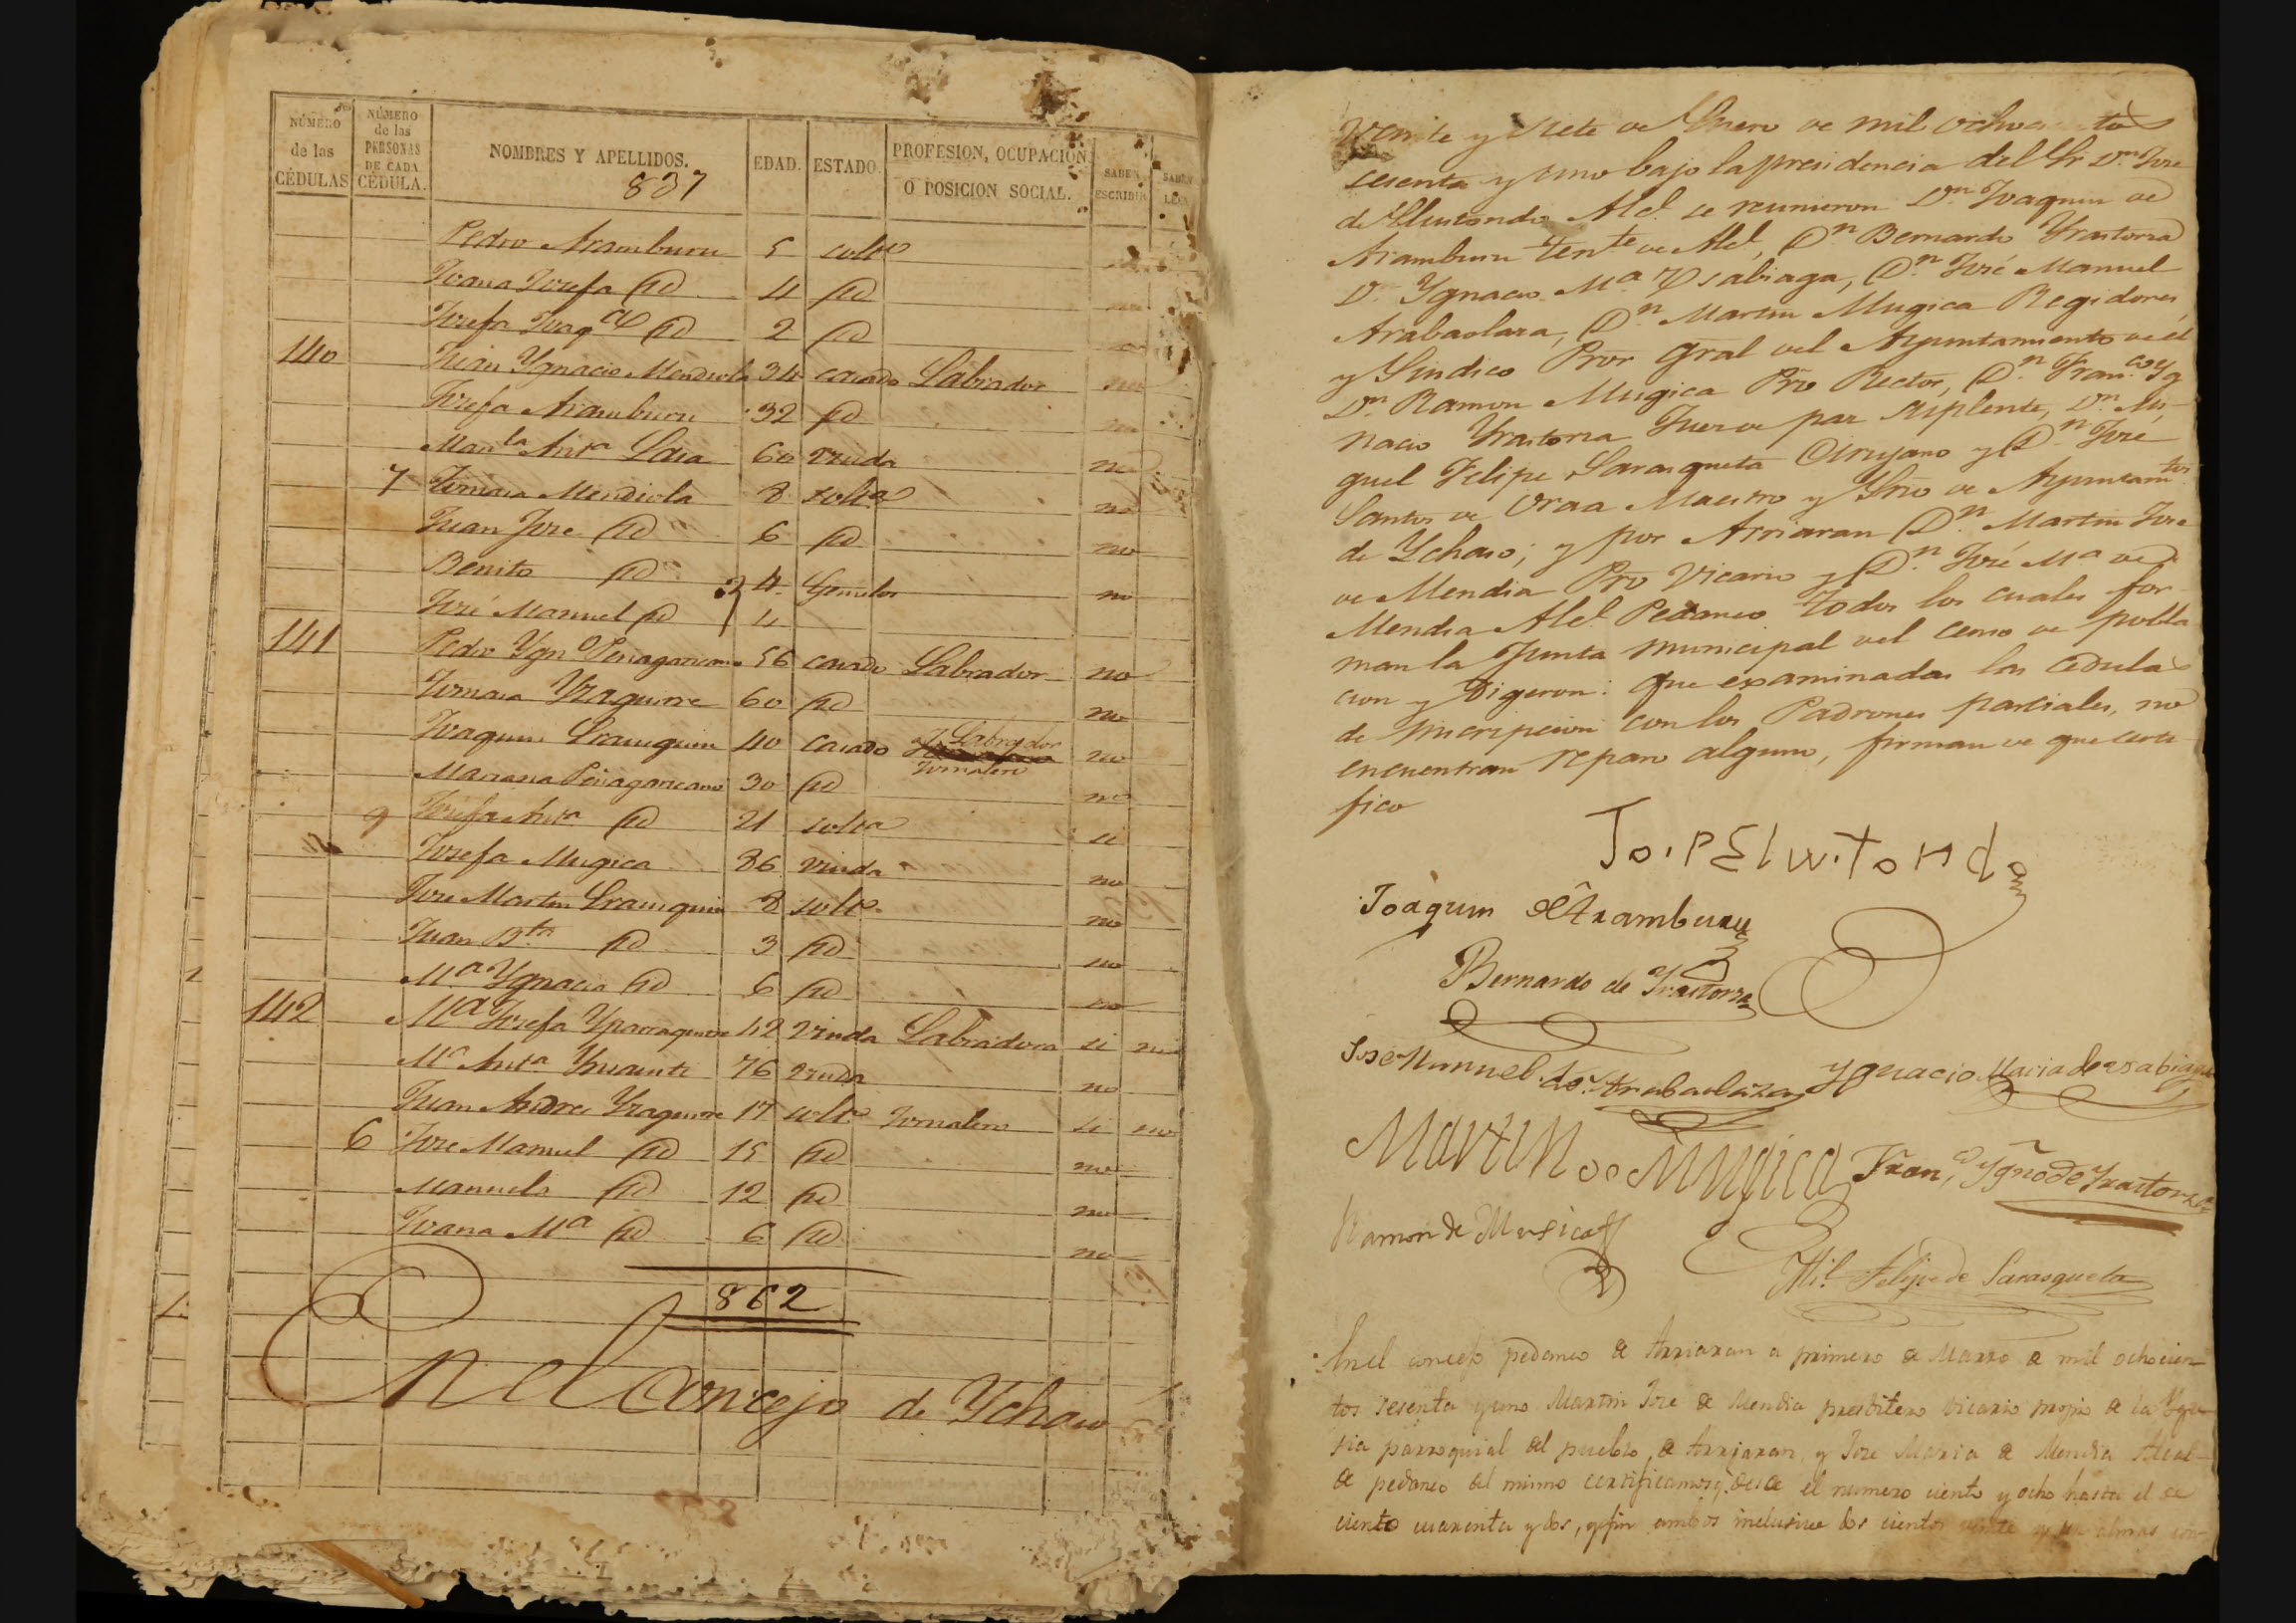 NÚMERO de las CÉDULAS NÚMERO de las PERSONAS DE CADA CÉDULA. NOMBRES Y APELLIDOS. EDAD. ESTADO. PROFESION, OCUPACION O POSICION SOCIAL. SABEN ESCRIBIR SABEN LEER
837
Pedro Aramburu 5 soltº
Juana Josefa id 4 id
Josefa Joaqª id 2 id
140 Juan Ygnacio Mendiola 34 casado Labrador no
Josefa Aramburu 32 id no
Manla Anta Loia 60 viuda no
7 Tomasa Mendiola 8 solta no
Juan Jose id 6 id no
Benito id 4 Gemelos no
José Manuel id 4
141 Pedro Ygnº Peñagaricano 56 casado Labrador no
Tomasa Yraguirre 60 id no
Joaquin 40 casado Labrador no
Jornalero
Mariana Peñagaricano 30 id no
9 Josefa Anta id 21 solta si
Josefa Mugica 86 viuda no
Jose Martin 8 soltº no
Juan Bta id 3 id no
Mª Ygnacia id 6 id no
142 Mª Josefa Yparraguirre 42 viuda Labradora si no
Mª Anta 76 viuda no
Juan Andres Yraguirre 17 soltº Jornalero si no
6 Jose Manuel id 15 id no
Manuela id 12 id no
Juana Mª id 6 id no
862
En el Concejo de Ychaso
Veinte y siete de Enero de mil ochocientos
sesenta y uno bajo la presidencia del Sr Dn Jose
de Elustondo Alcl. se reunieron Dn Joaquin de
Aramburu tente de Alcl, Dn Bernardo Yrastorza
Dn Ygnacio Mª Ysabiaga, Dn José Manuel
Arabaolaza, Dn Martin Mugica Regidores
y Sindico Pror gral del Ayuntamiento de él
Dn Ramon Mugica Pro Rector, Dn Franco Yg
nacio Yrastorza Juez de paz suplente, Dn Mi-
guel Felipe Sarasqueta Cirujano y Dn José
Santos de Oraa Maestro y Srio de Ayuntamtos
de Ychaso; y por Arriaran Dn Martin Jose
de Mendia Pro Vicario y Dn José Mª de
Mendia Alcl Pedaneo todos los cuales for
man la Junta municipal del censo de pobla
cion y digeron: que examinadas las cedulas
de inscripcion con los Padrones parciales, no
encuentran reparo alguno, firman de que certi
fico
José Elustondo
Joaquin de Aramburu
Bernardo de Yrastorza
José Manuel de Arabaolaza Ygnacio Maria de Esabiaga
Martin de Mugica Franco Ygño de Yrastorza
Ramon de Musica
Mil Felipe de Sarasqueta
En el concejo pedaneo de Arriaran a primero de Marzo de mil ochocien-
tos sesenta y uno Martin Jose de Mendia presbitero vicario propio de la Ygle
sia parroquial del pueblo de Arriaran y Jose Maria de Mendia Alcal-
de pedaneo del mismo certificamos q. desde el numero ciento y ocho hasta el de
ciento cuarenta y dos, y fin ambos inclusive dos cientos veinte y almas con-